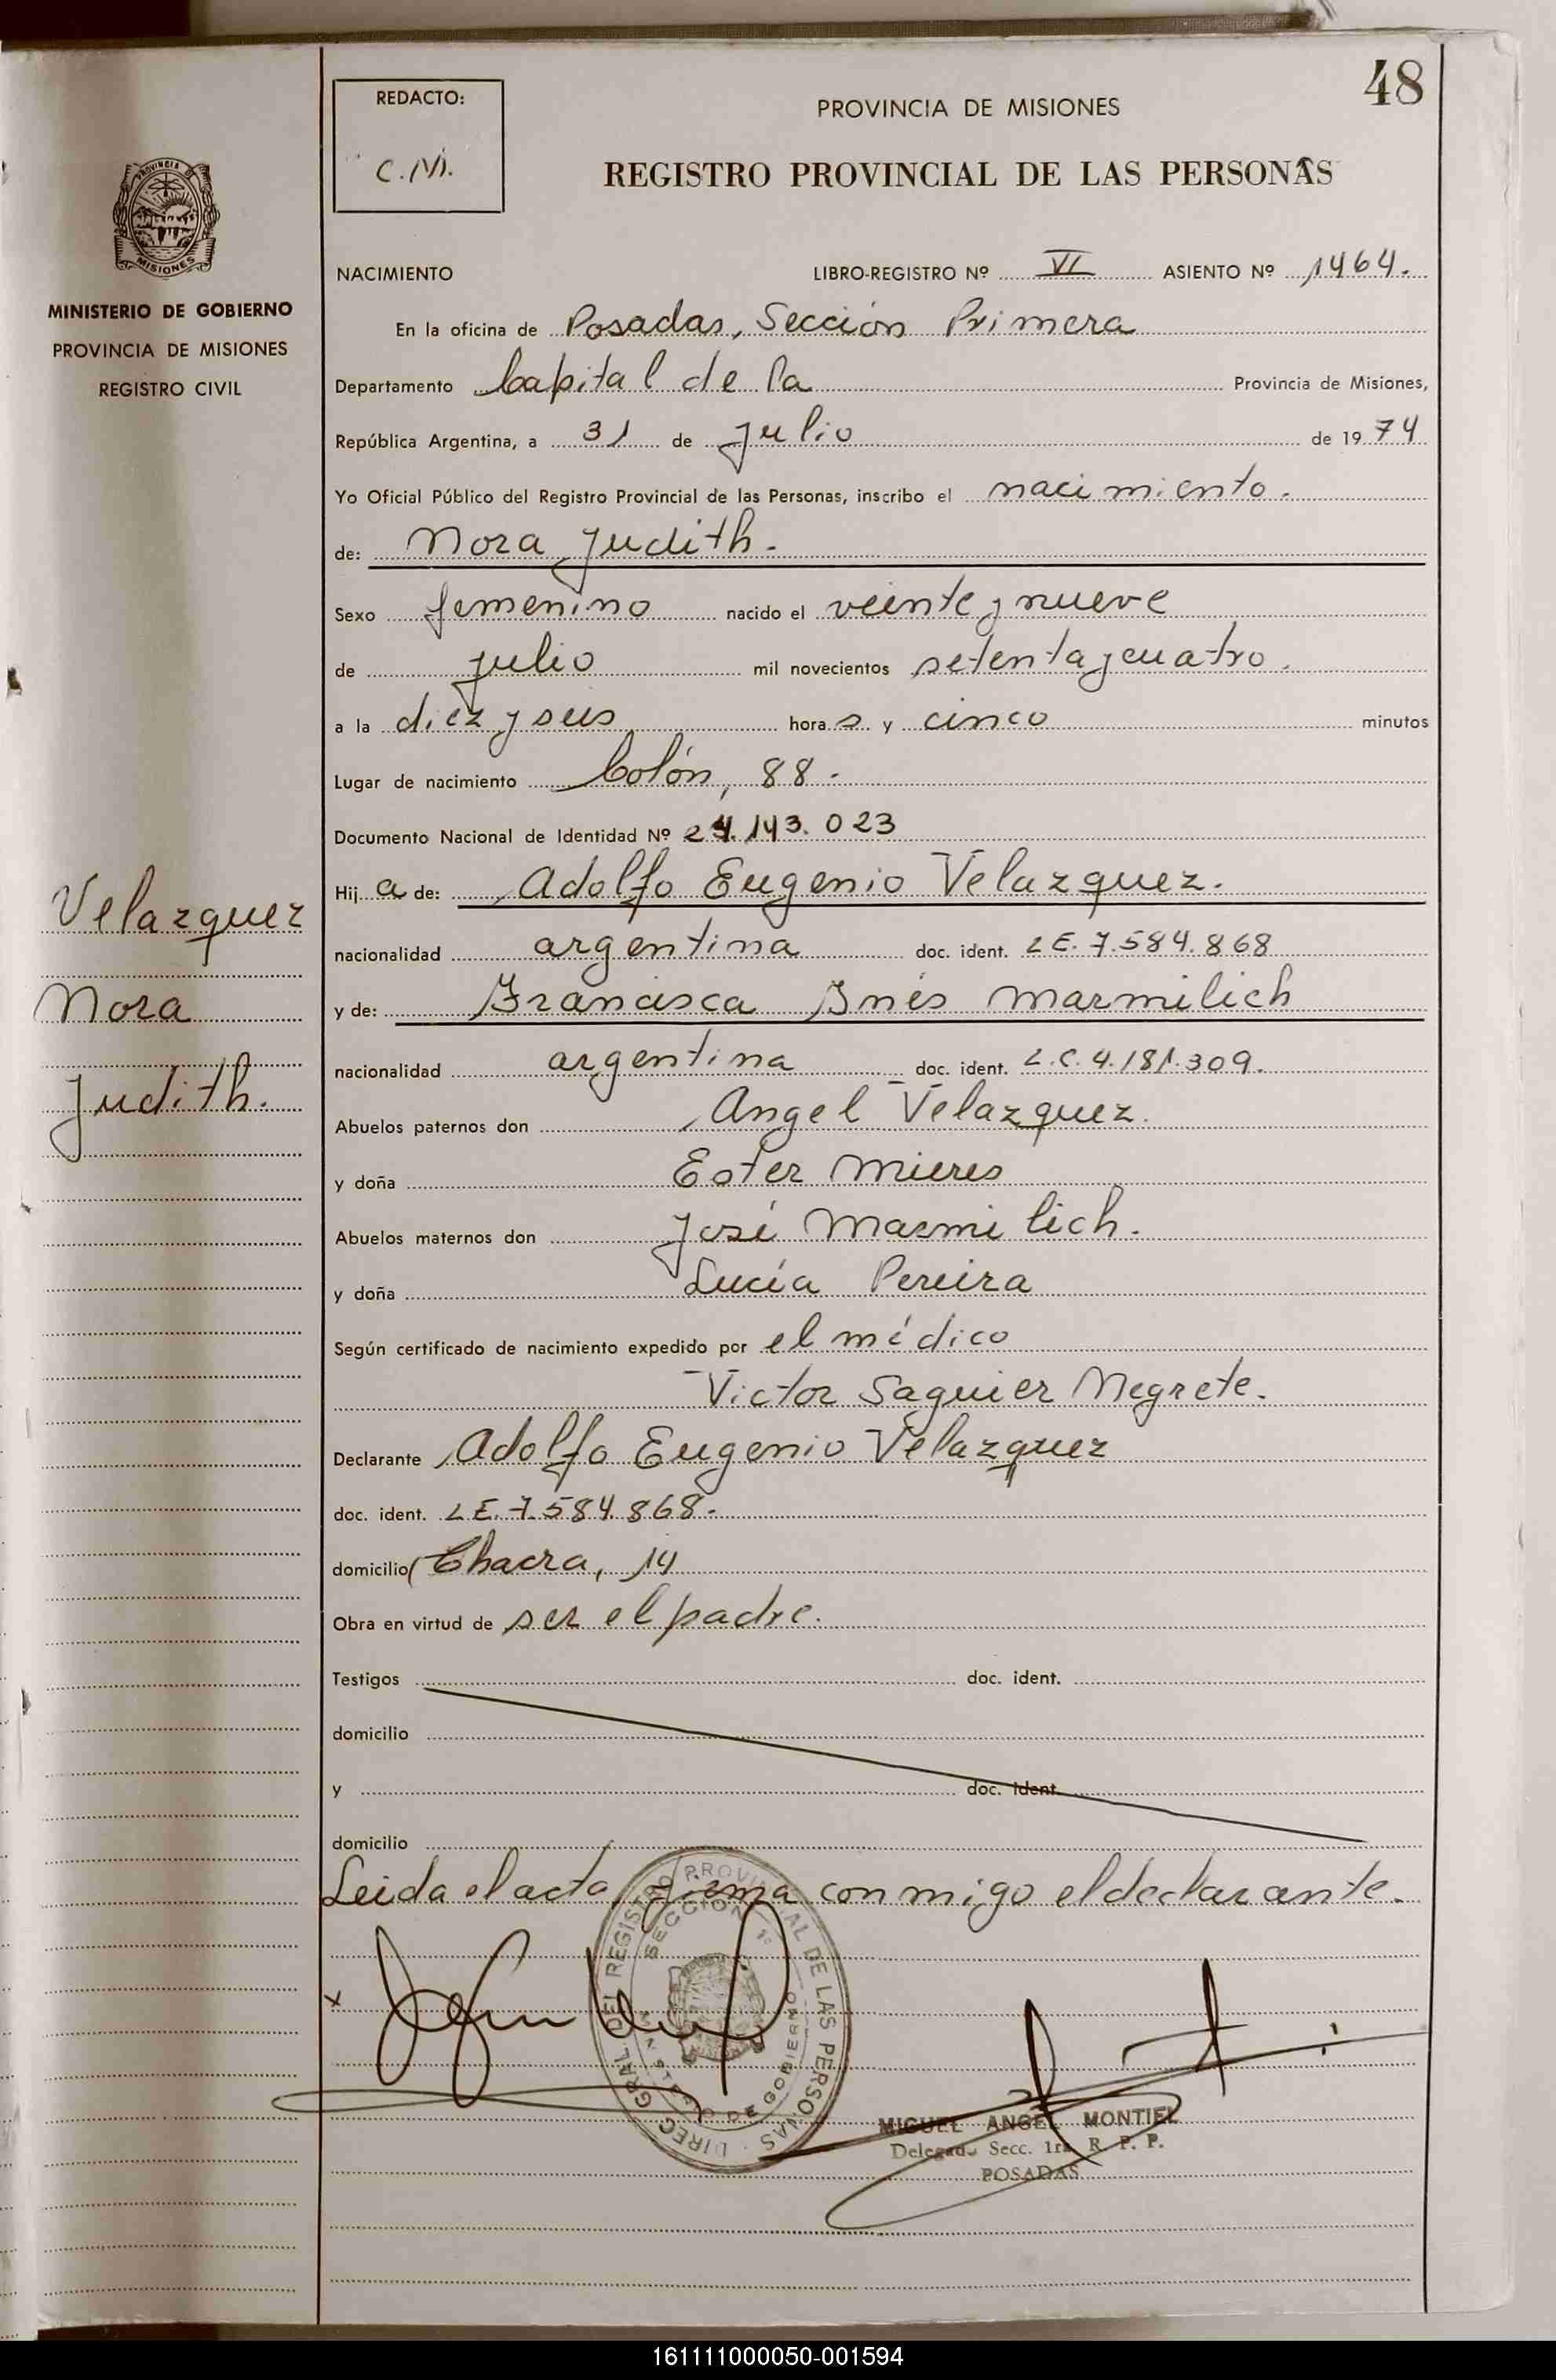 48
REDACTO:
C.M.
PROVINCIA DE MISIONES
REGISTRO PROVINCIAL DE LAS PERSONAS
PROVINCIA DE
MISIONES
MINISTERIO DE GOBIERNO
PROVINCIA DE MISIONES
REGISTRO CIVIL
NACIMIENTO LIBRO-REGISTRO Nº VI ASIENTO Nº 1464.
En la oficina de Posadas, Sección Primera
Departamento Capital de la Provincia de Misiones,
República Argentina, a 31 de Julio de 1974
Yo Oficial Público del Registro Provincial de las Personas, inscribo el nacimiento.
de: Nora Judith.
Sexo femenino nacido el veinte y nueve
de julio mil novecientos setenta y cuatro.
a la diez y seis horas y cinco minutos
Lugar de nacimiento Colón, 88.
Documento Nacional de Identidad Nº 24.143.023
Velazquez
Nora
Judith.
Hija de: Adolfo Eugenio Velazquez.
nacionalidad argentina doc. ident. LE. 7.584.868
y de: Francisca Inés Marmilich
nacionalidad argentina doc. ident. L.C. 4.181.309.
Abuelos paternos don Angel Velazquez.
y doña Ester Mieres
Abuelos maternos don José Marmilich.
y doña Lucía Pereira
Según certificado de nacimiento expedido por el médico
Victor Saguier Negrete.
Declarante Adolfo Eugenio Velazquez
doc. ident. LE. 7.584.868.
domicilio Chacra, 14
Obra en virtud de ser el padre.
Testigos doc. ident.
domicilio
y doc. ident.
domicilio
Leida el acta, firma conmigo el declarante.
x
DIREC. GRAL. DEL REGISTRO PROVINCIAL DE LAS PERSONAS
SECCION 1º
MINISTERIO DE GOBIERNO
MIGUEL ANGEL MONTIEL
Delegado Secc. 1ra R. P. P.
POSADAS
161111000050-001594